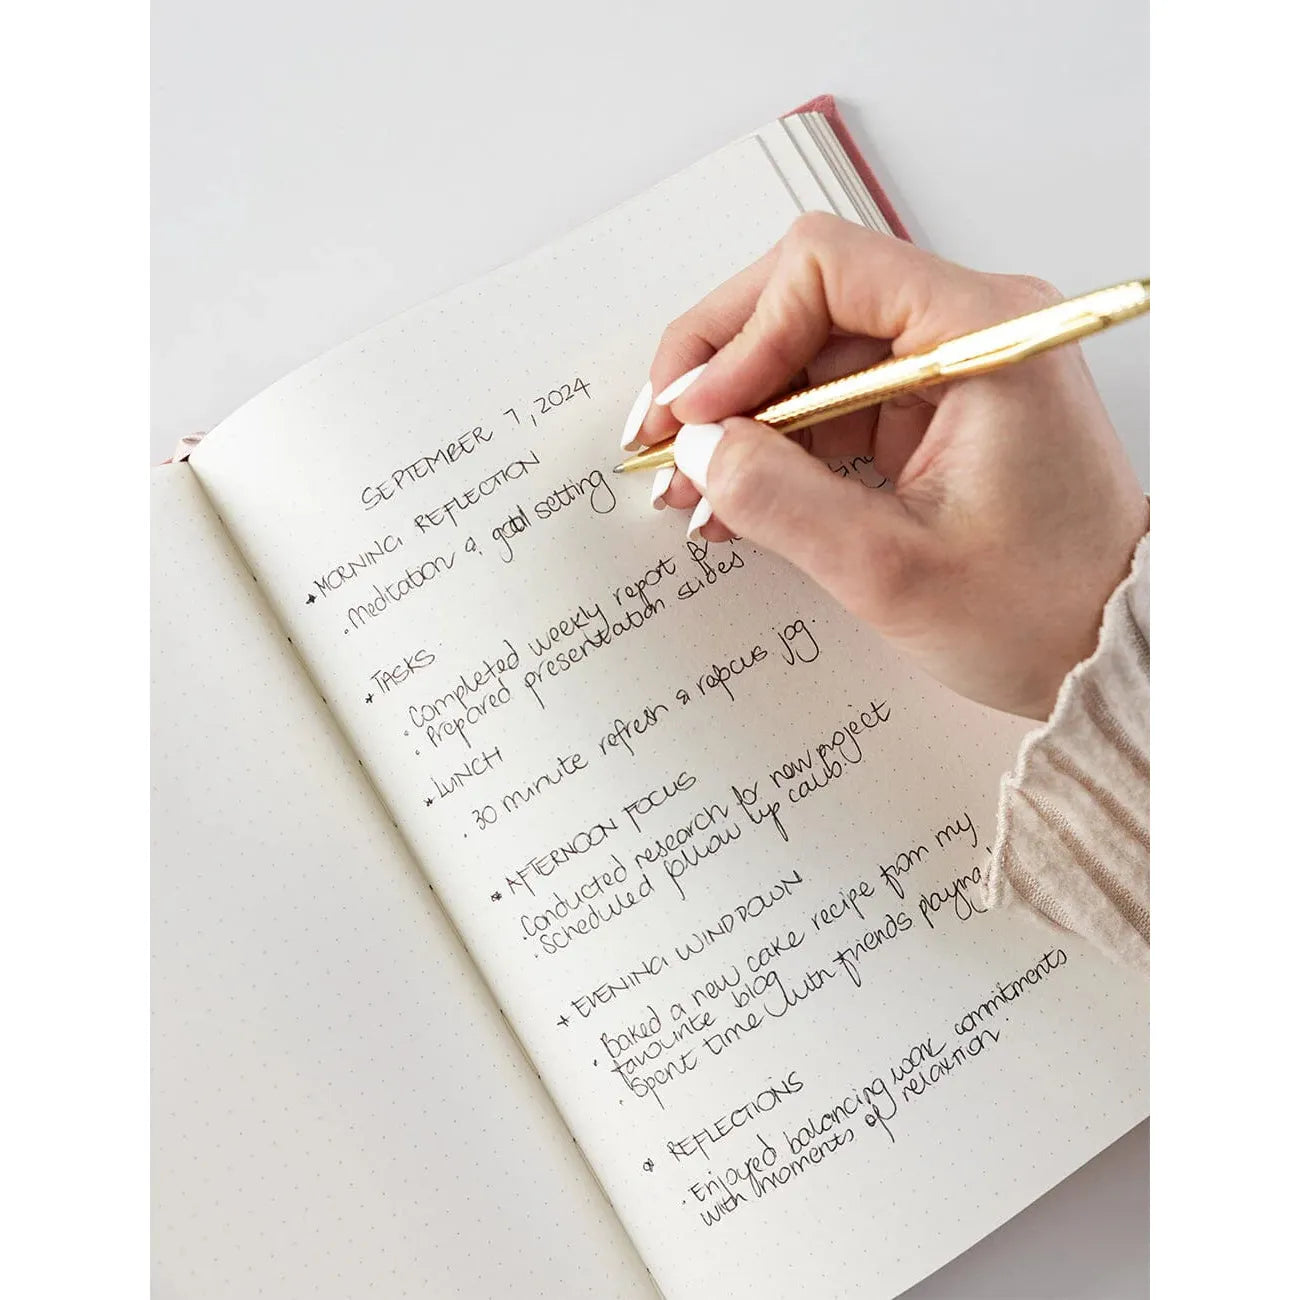 SEPTEMBER 7, 2024
* MORNING REFLECTION
• Meditation & goal setting
* TASKS
• Completed weekly report
• Prepared presentation slides
* LUNCH
• 30 minute refresh & refocus jog.
* AFTERNOON FOCUS
• Conducted research for new project
• scheduled follow up calls.
* EVENING WINDDOWN
• Baked a new cake recipe from my
favourite blog
• Spent time with friends playing
* REFLECTIONS
• Enjoyed balancing work commitments
with moments of relaxtion